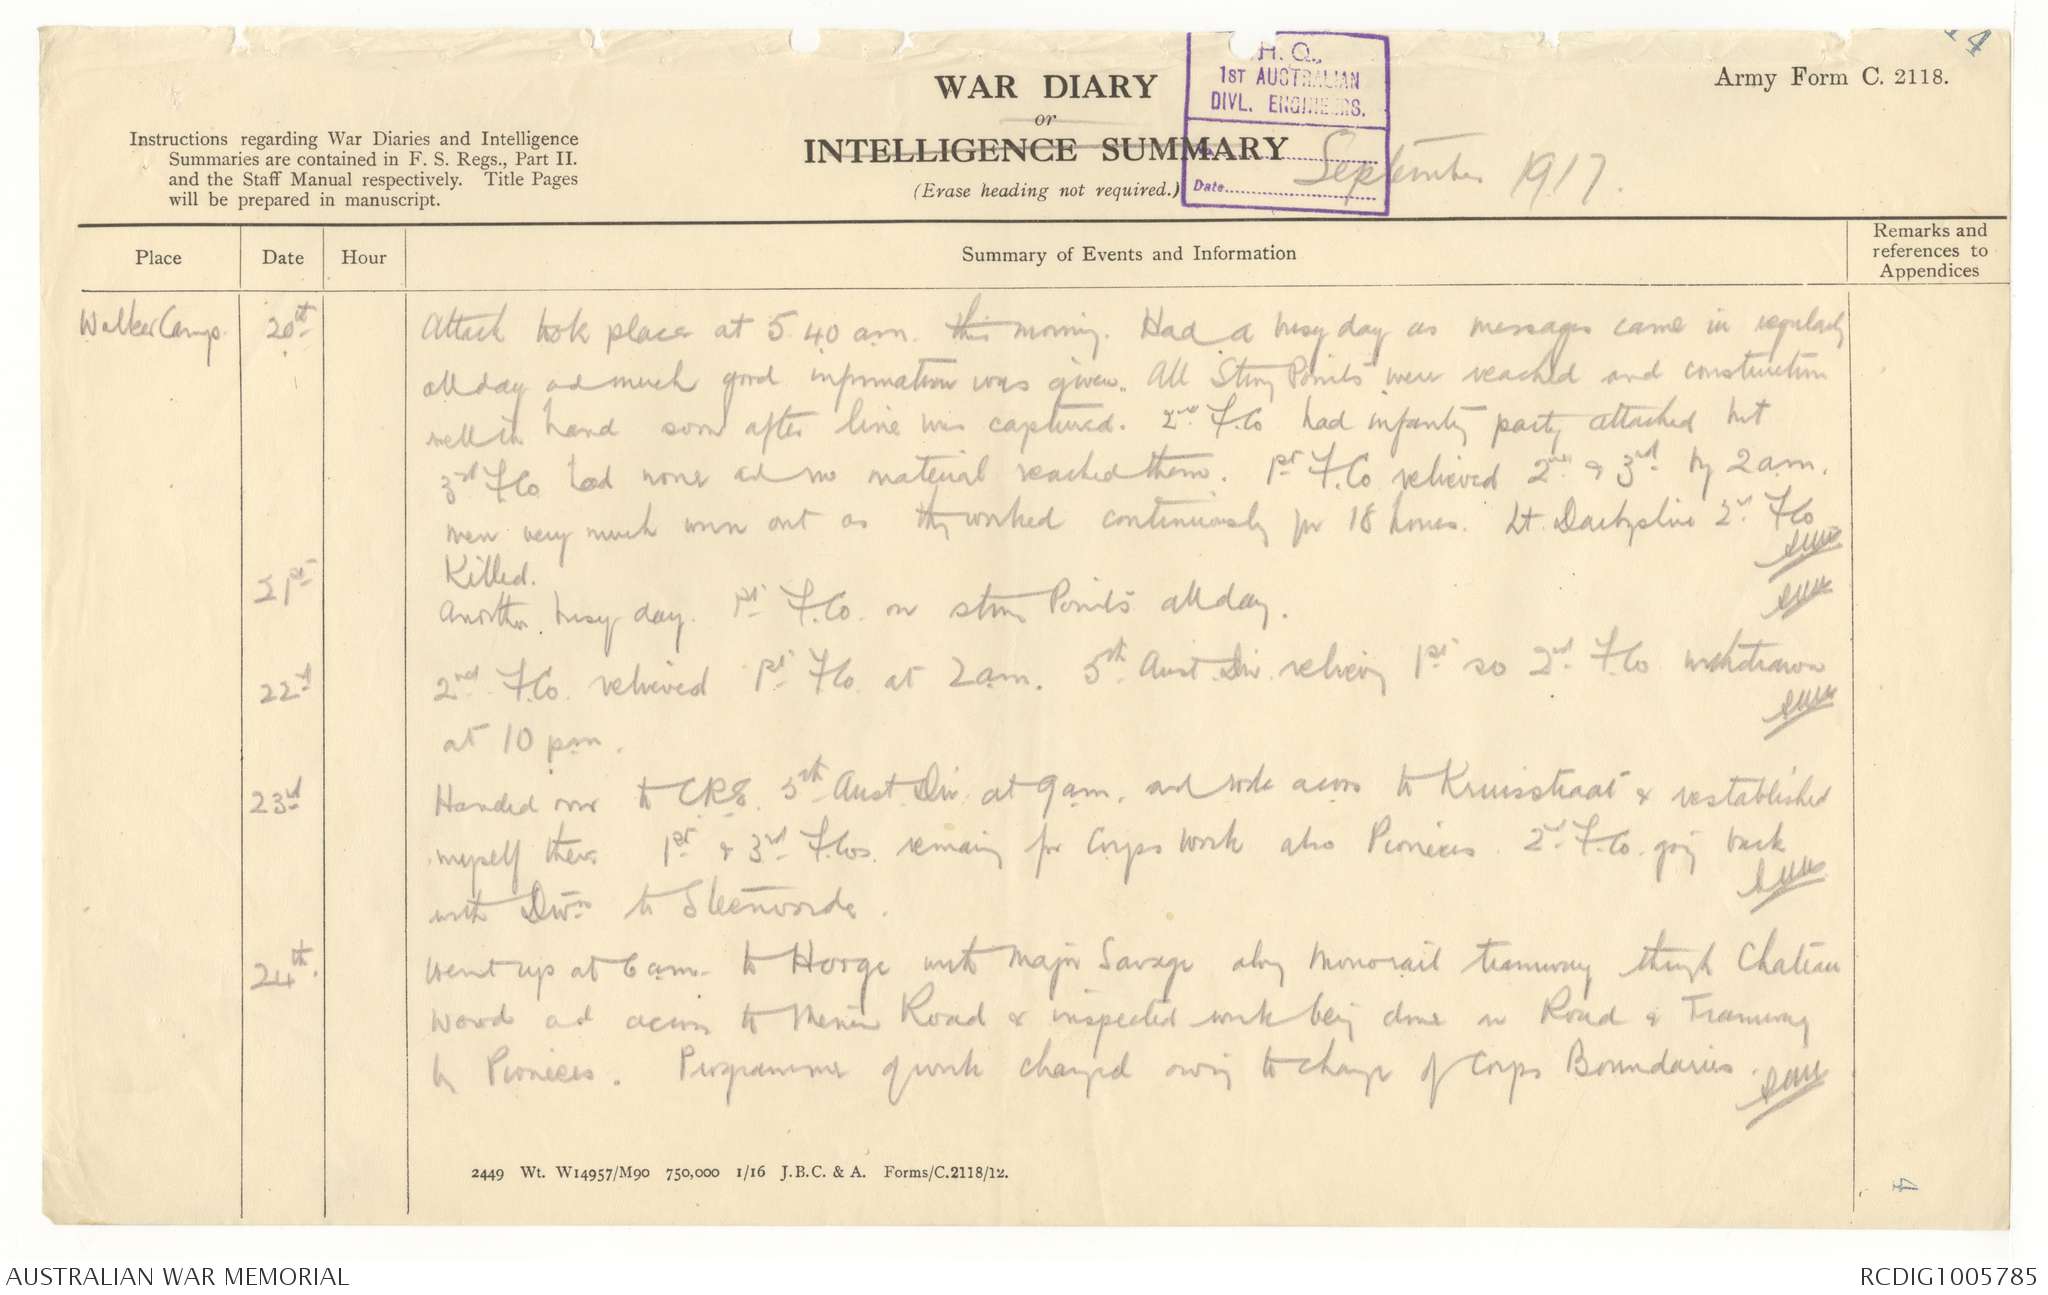 4
Army Form C. 2118.
H.Q.,
1ST AUSTRALIAN
DIVL. ENGINEERS.
Date
WAR DIARY
or
INTELLIGENCE SUMMARY
(Erase heading not required.)
September 1917.
Instructions regarding War Diaries and Intelligence
Summaries are contained in F. S. Regs., Part II.
and the Staff Manual respectively. Title Pages
will be prepared in manuscript.
Place
Date
Hour
Summary of Events and Information
Remarks and
references to
Appendices
Walker Camp. 20th Attack took place at 5.40 am. this morning. Had a busy day as messages came in regularly
all day and much good information was given. All Strong Points were reached and construction
well in hand soon after line was captured. 2nd F.Co had infantry party attached but
3rd F.Co had none and no material reached them. 1st F.Co relieved 2nd & 3rd by 2 am.
men very much worn out as they worked continuously for 18 hours. Lt. Darbyshire 2nd F.Co
Killed.
21st Another busy day. 1st F.Co. on strong Points all day.
22nd 2nd F.Co. relieved 1st F.Co. at 2 am. 5th Aust. Div. relieving 1st so 2nd F.Co withdrawn
at 10 pm.
23rd Handed over to CRE. 5th Aust. Div. at 9 am. and rode across to Kruisstraat & restablished
myself there. 1st & 3rd F.Cos. remaing for Corps work also Pioneers. 2nd F.Co. going back
with Divn to Steenvorde.
24th. Went up at 6 am. to Hooge with Major Savage along Monorail tramway through Chateau
Wood and across to Menin Road & inspected work being done on Road & Tramway
by Pioneers. Programme of work changed owing to change of Corps Boundaries.
2449 Wt. W14957/M90 750,000 1/16 J.B.C. & A. Forms/C.2118/12.
4
AUSTRALIAN WAR MEMORIAL
RCDIG1005785